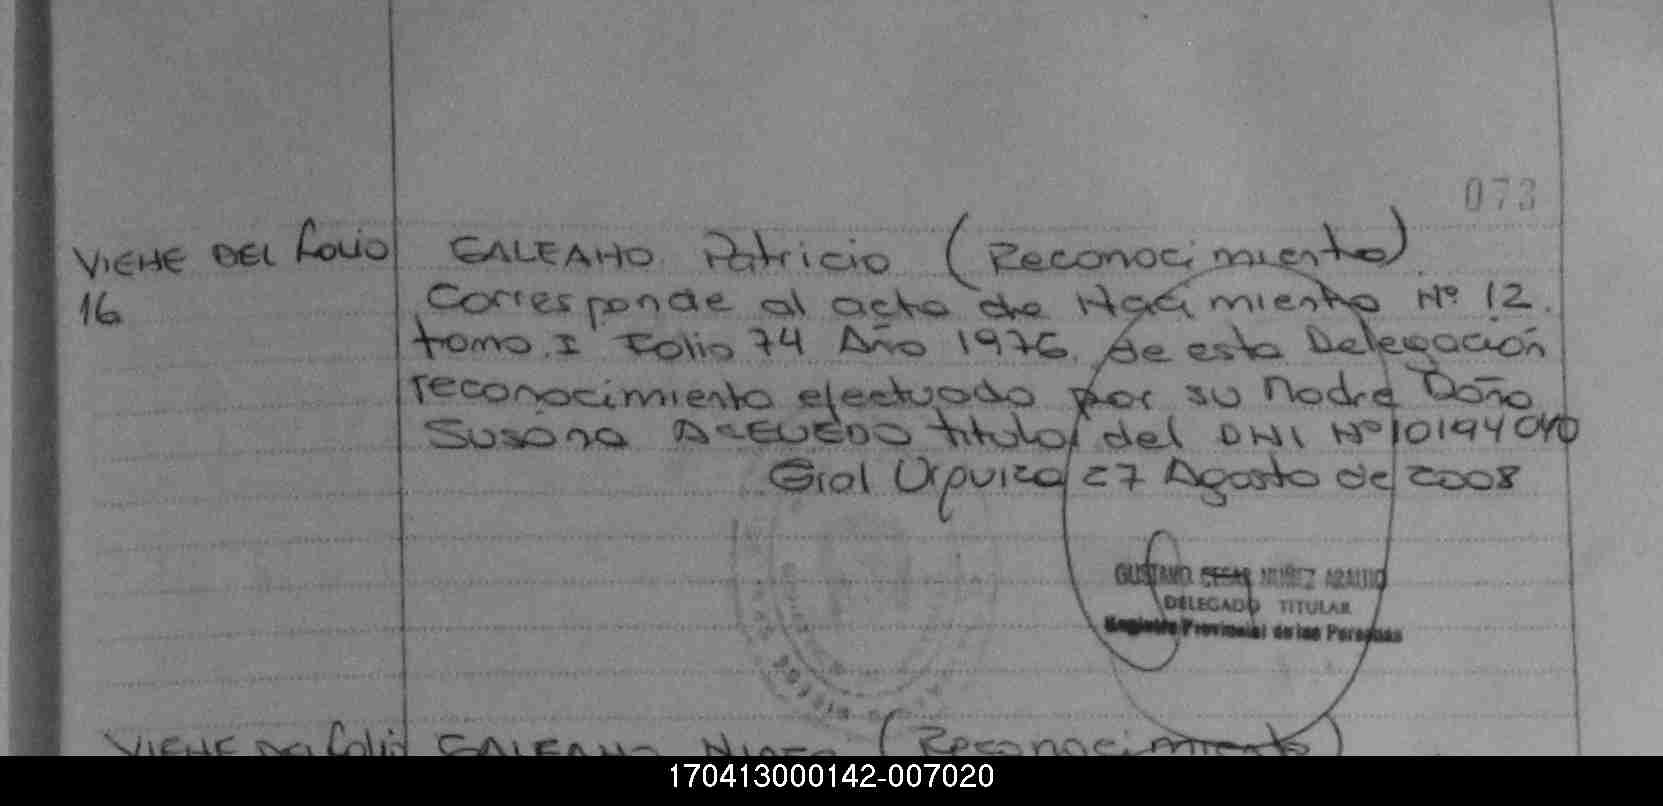 073
VIENE DEL folio GALEANO Patricio (Reconocimiento)
16 Corresponde al acta de Nacimiento Nº 12.
tomo I Folio 74 Año 1976. de esta Delegación
reconocimiento efectuado por su Madre Doña
Susana ACEVEDO titular del DNI Nº 10194040
Gral Urquiza 27 Agosto de 2008
GUSTAVO CESAR NUÑEZ ARAUJO
DELEGADO TITULAR
Registro Provincial de las Personas
VIENE DEL folio GALEANO (Reconocimiento)
170413000142-007020